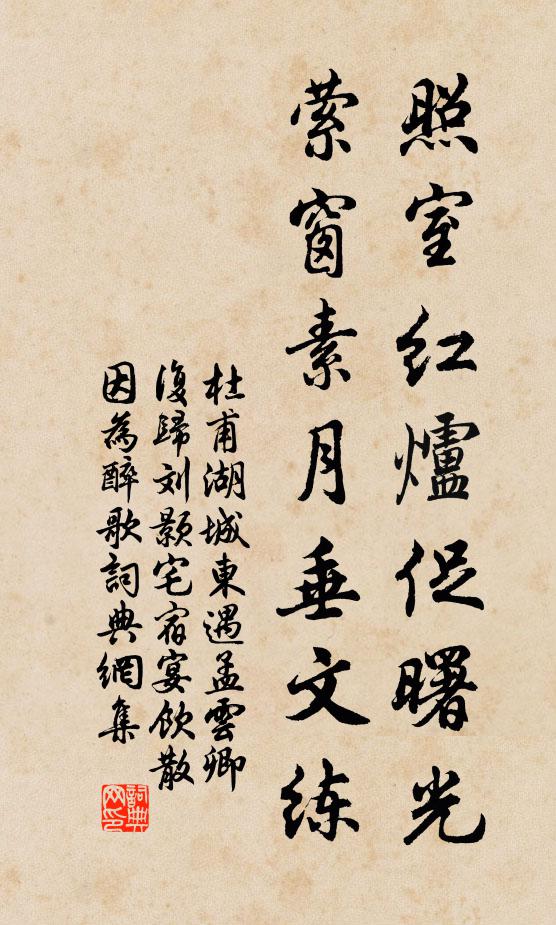 照室红爐促曙光
萦窗素月垂文练
杜甫湖城東遇孟雲卿
復歸刘颢宅宿宴饮散
因為醉歌詞典網集
詞典网印